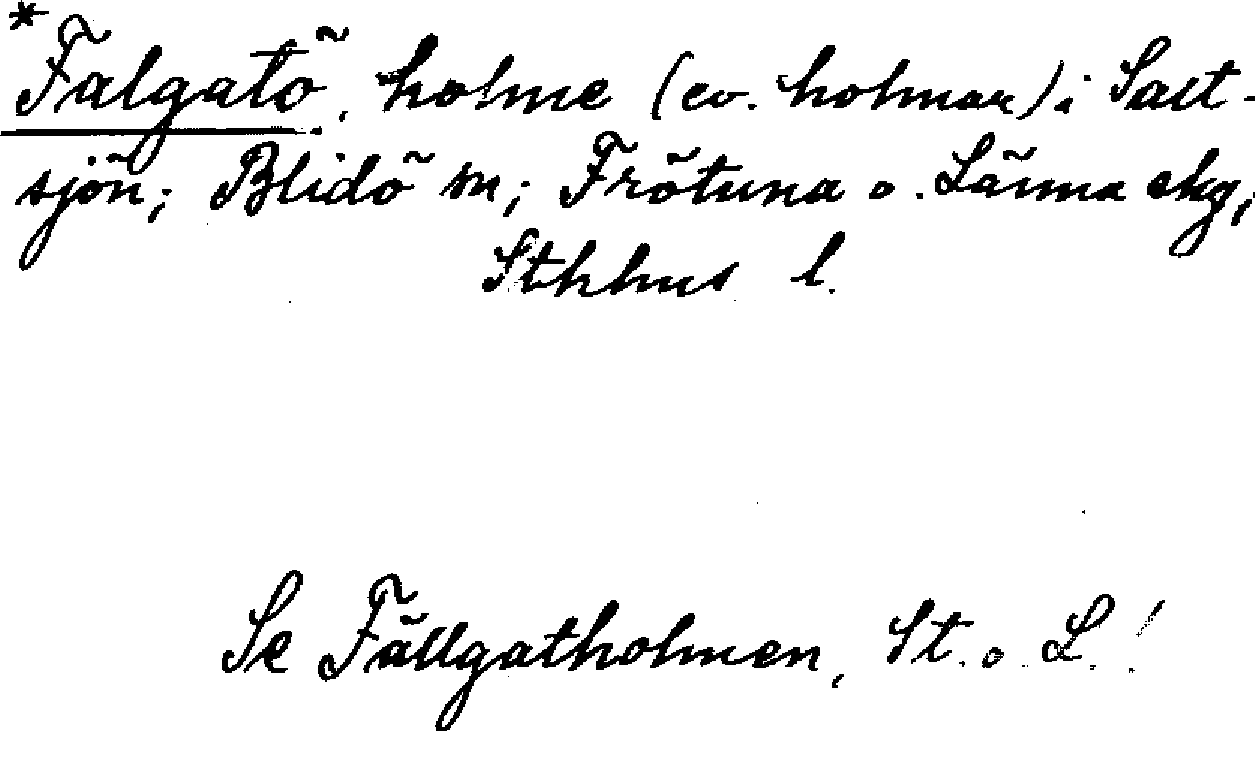 *Falgatö, holme (ev. holmar) i Salt-
sjön; Blidö sn; Frötuna o. Länna skg,
Sthlms l.
Se Fällgatholmen, St. o. L.!